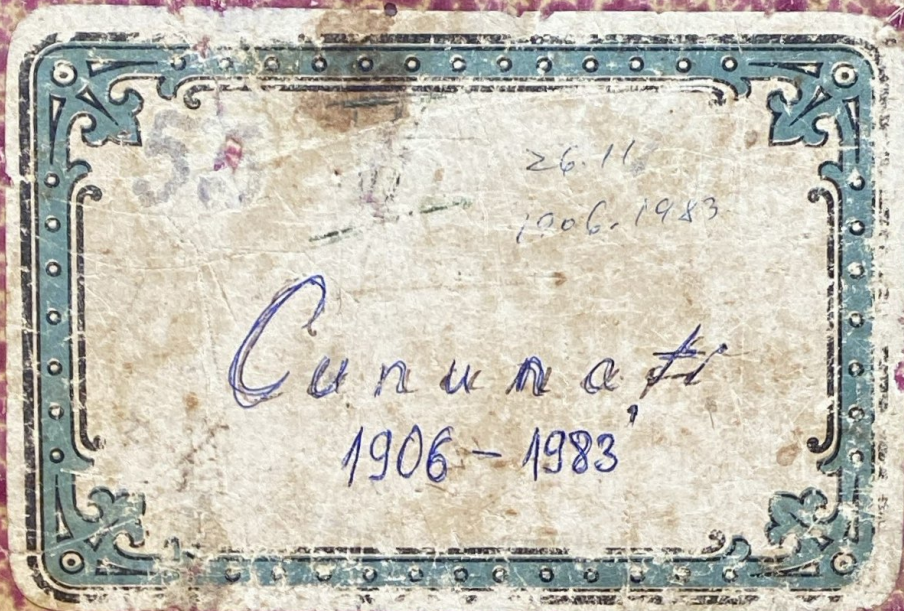 55
26.11
1906-1983
Cununați
1906-1983